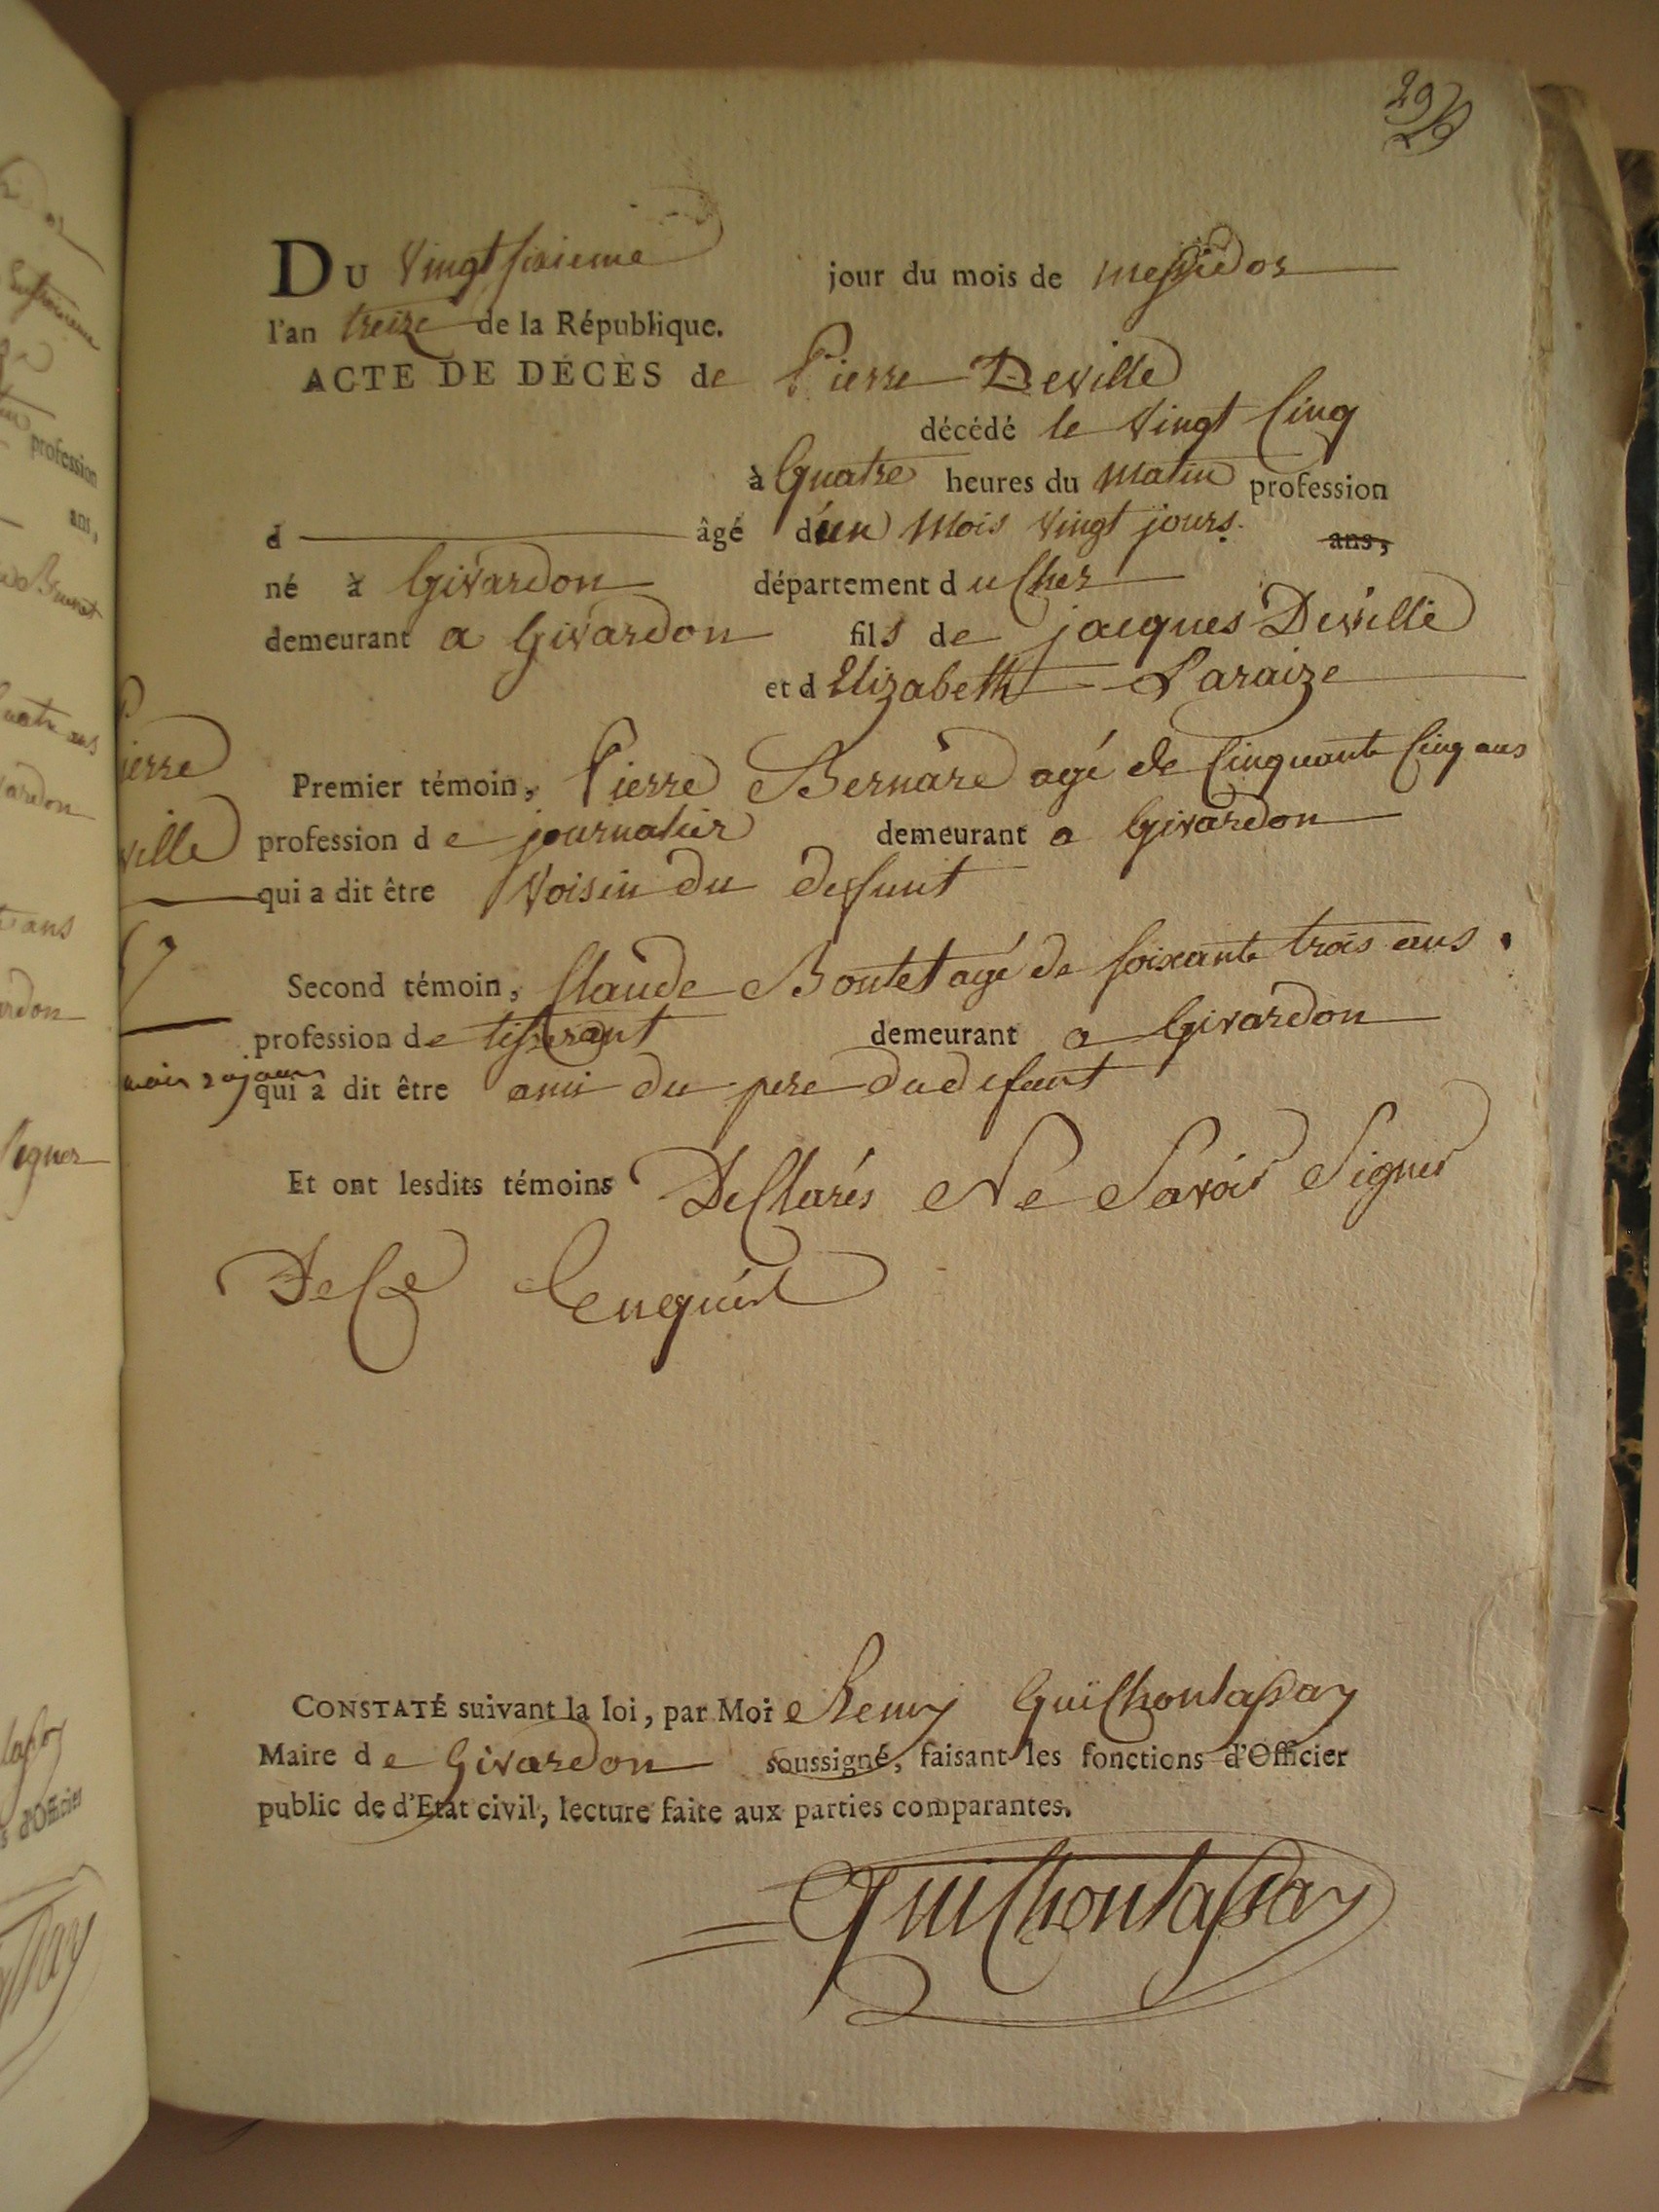 29
Du vingt sixieme jour du mois de messidor
l'an treize de la République.
ACTE DE DÉCÈS de Pierre Deville
décédé le vingt Cinq
à Quatre heures du matin profession
d âgé d'un mois vingt jours. ans,
né à Givardon département du Cher
demeurant a Givardon fils de jacques Deville
et d Elizabeth Laraize
Premier témoin, Pierre Bernard agé de Cinquante Cinq ans
profession de journalier demeurant a Givardon
qui a dit être Voisin du deffunt
Second témoin, Claude Boutet agé de soixante trois ans.
profession de tisserant demeurant a Givardon
qui a dit être ami du pere du defunt
Et ont lesdits témoins Declarés Ne Savoir Signer
De Ce Enquis
CONSTATÉ suivant la loi, par Moi Remy Guichontassay
Maire de Givardon soussigné, faisant les fonctions d'Officier
public de d'Etat civil, lecture faite aux parties comparantes.
Guichontassay
ierre
ville
mois 20 jours
profession
ans,
ardon
ans
ardon
signer
d'Officier